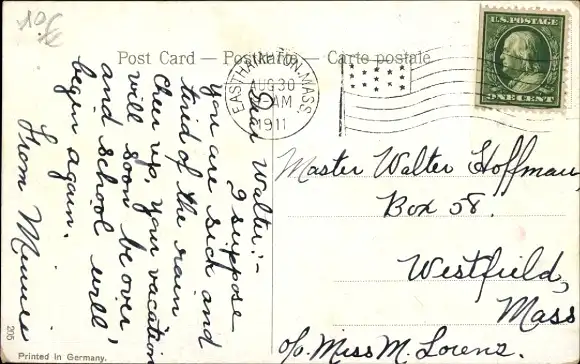 Post Card — Postkarte — Carte postale
U.S. POSTAGE
ONE CENT
EASTHAMPTON, MASS.
AUG 30
AM
1911
Dear Walter:-
I suppose
you are sick and
tired of the rain
Cheer up, your vacation
will soon be over,
and school will
begin again.
From Minnie
Master Walter Hoffman
Box 58.
Westfield,
Mass
c/o Miss M. Lorenz.
205
Printed in Germany.